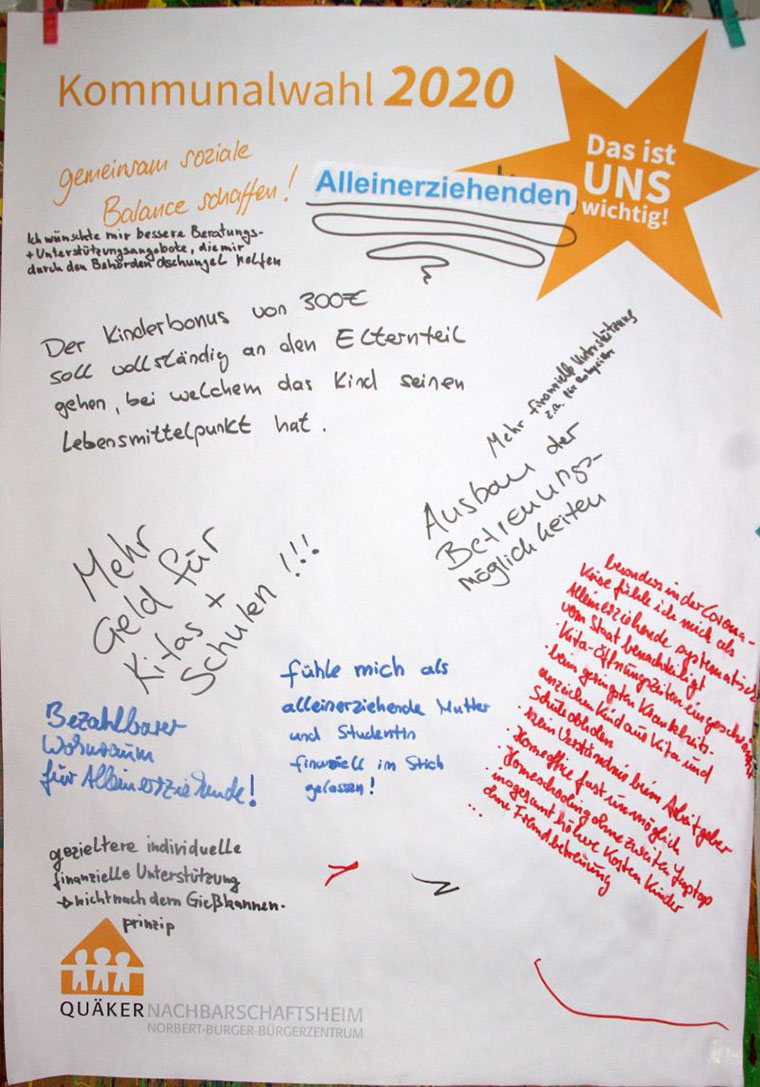 Kommunalwahl 2020
Das ist
UNS
wichtig!
gemeinsam soziale
Balance schaffen!
Alleinerziehenden
Ich wünschte mir bessere Beratungs-
+ Unterstützungsangebote, die mir
durch den Behörden dschungel helfen
Der Kinderbonus von 300€
soll vollständig an den Elternteil
gehen, bei welchem das Kind seinen
Lebensmittelpunkt hat.
Mehr finanzielle Unterstützung
z.B. für
Ausbau der
Betreuungs-
möglichkeiten
Mehr
Geld für
Kitas +
Schulen!!!
besonders in der Corona-
Krise fühle ich mich als
Alleinerziehende systematisch
vom Staat benachteiligt
· Kita-Öffnungszeiten eingeschränkt
· beim geringsten Krankheits-
anzeichen Kind aus Kita und
Schule abholen
· kein Verständnis beim Arbeitgeber
· Homeoffice fast unmöglich
· Homeschooling ohne zweiten Laptop
· insgesamt höhere Kosten Kinder
ohne Fremdbetreuung
...
fühle mich als
alleinerziehende Mutter
und Studentin
finanziell im Stich
gelassen!
Bezahlbarer
Wohnraum
für Alleinerziehende!
gezieltere individuelle
finanzielle Unterstützung
→ nicht nach dem Gießkannen-
prinzip
QUÄKERNACHBARSCHAFTSHEIM
NORBERT-BURGER-BÜRGERZENTRUM